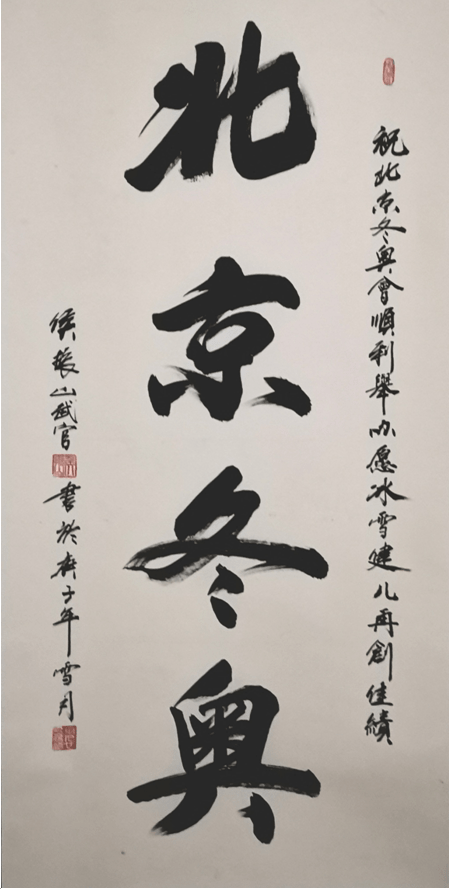 祝北京冬奥會順利舉办愿冰雪健儿再創佳績
北京冬奥
侯振山武官
書於庚子年雪月